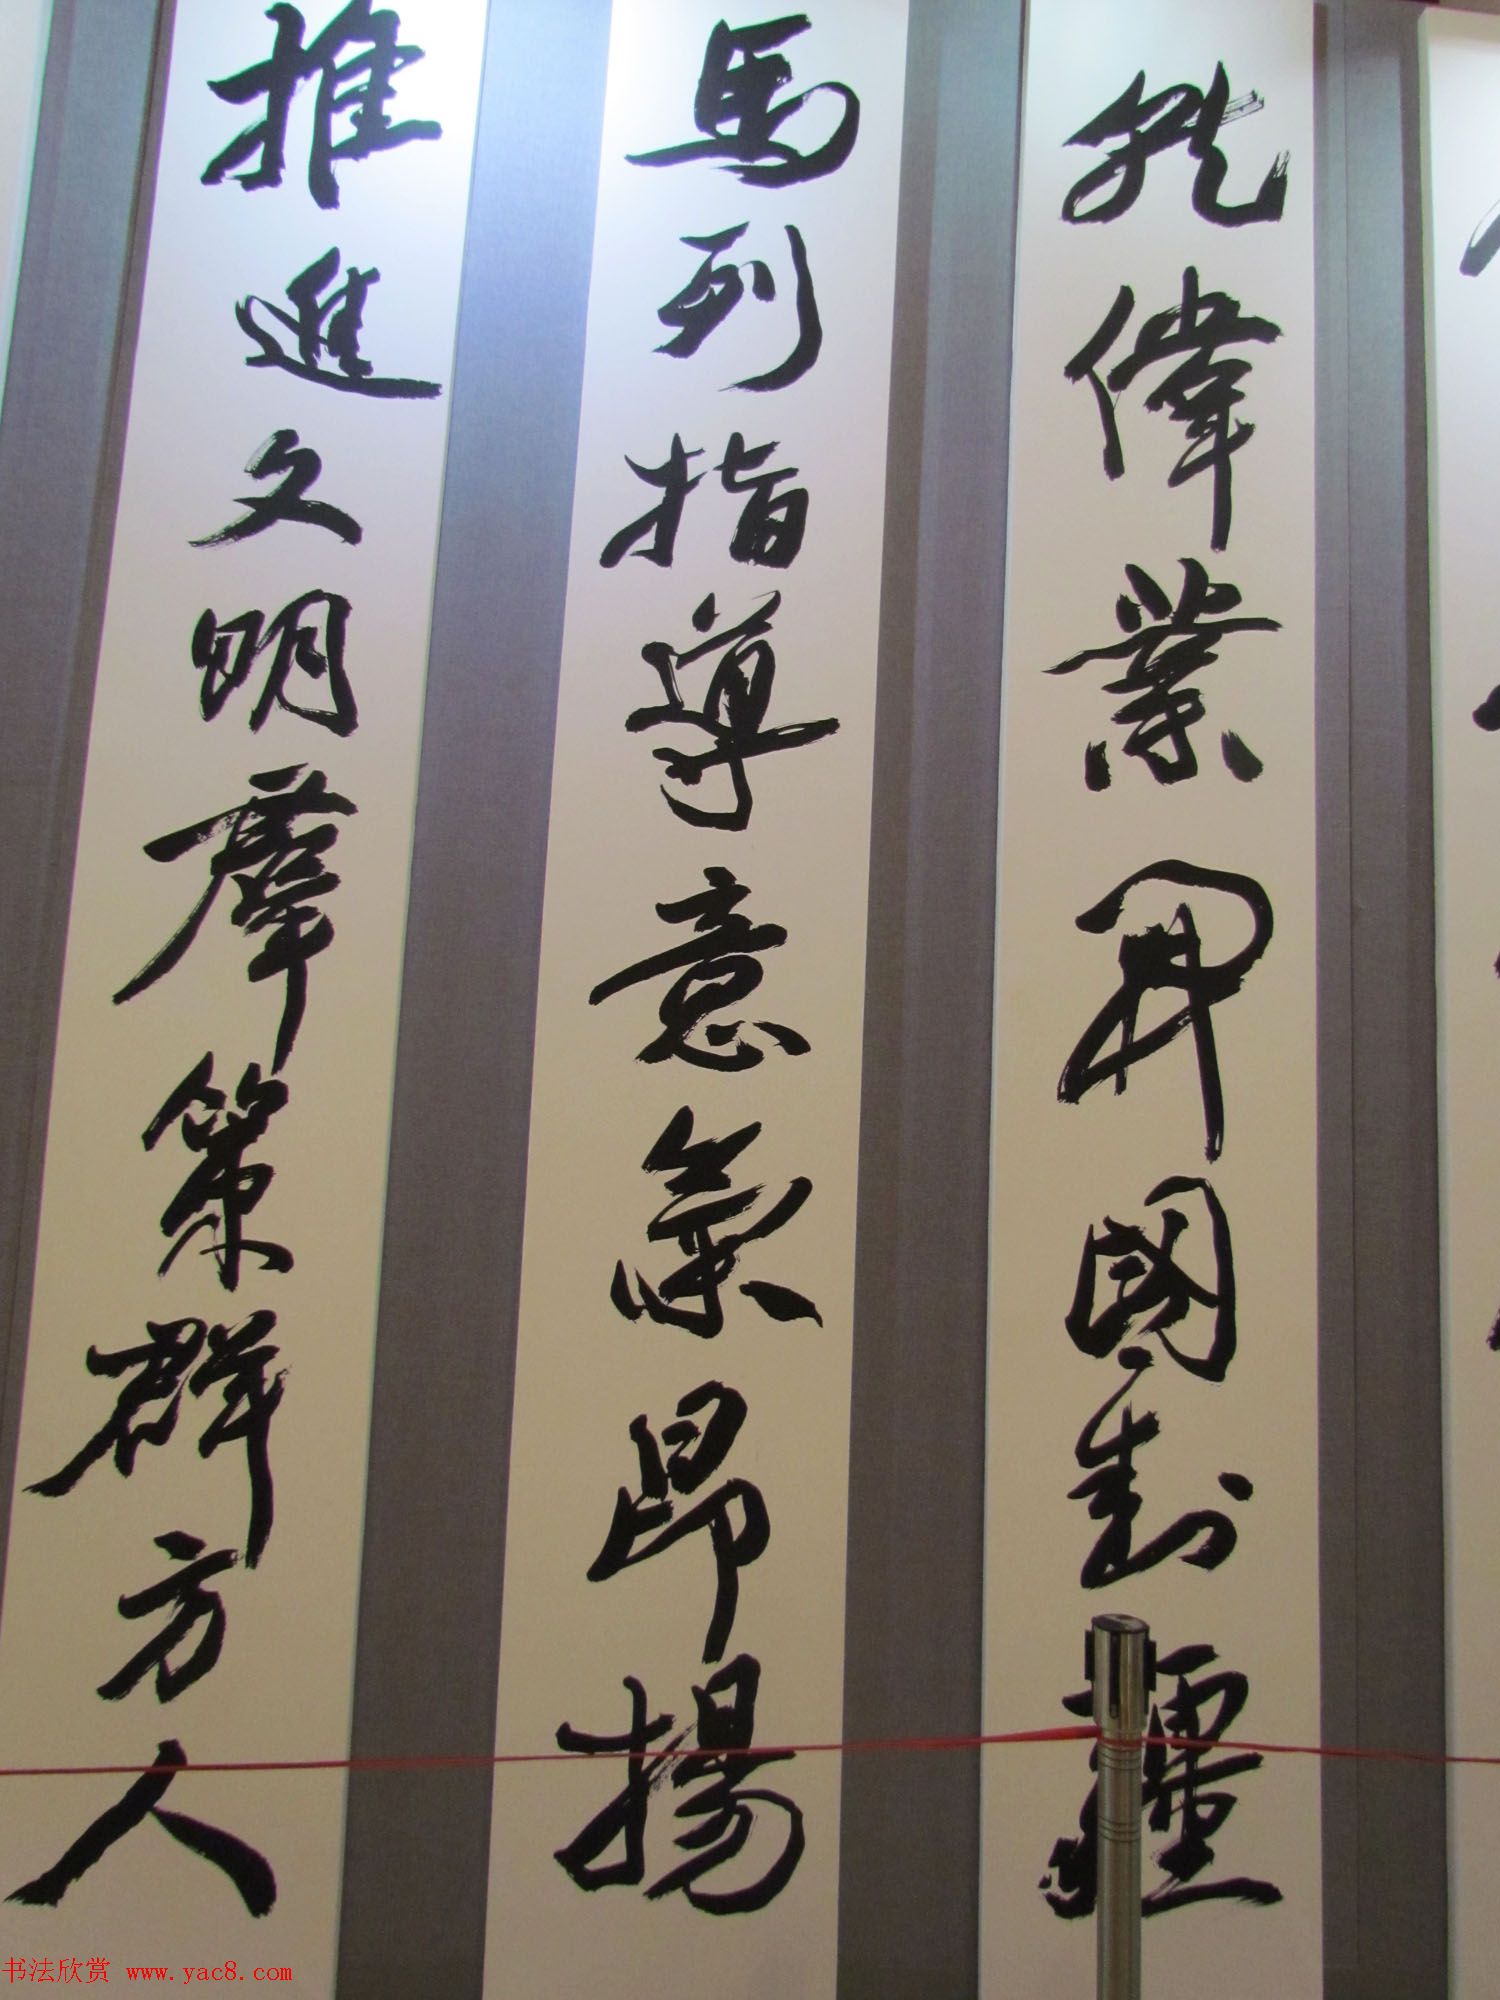 就偉業開國封疆
馬列指導意氣昂揚
推進文明羣策群力人
书法欣赏 www.yac8.com